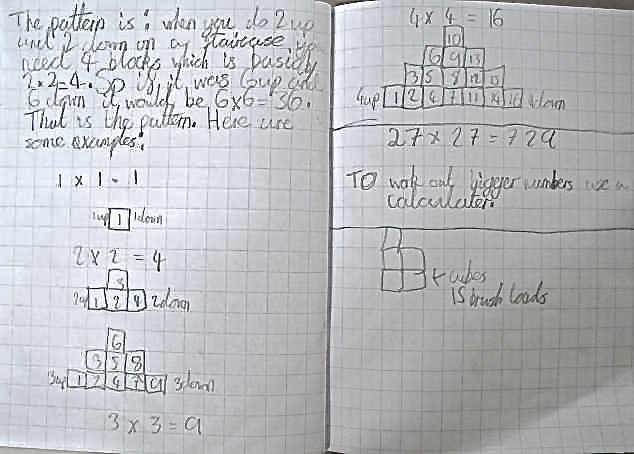 The pattern is: when you do 2 up
and 2 down on a staircase you
need 4 blocks which is basicly
2×2=4. So if it was 6 up and
6 down it would be 6×6=36.
That is the pattern. Here are
some examples:
1 × 1 = 1
1up 1 1down
2 × 2 = 4
3
2up 1 2 4 2down
6
3 5 8
3up 1 2 4 7 9 3down
3 × 3 = 9
4 × 4 = 16
10
6 9 13
3 5 8 12 15
4up 1 2 4 7 11 14 16 4down
27 × 27 = 729
To work out bigger numbers use a
calculater.
4 cubes
15 brush loads